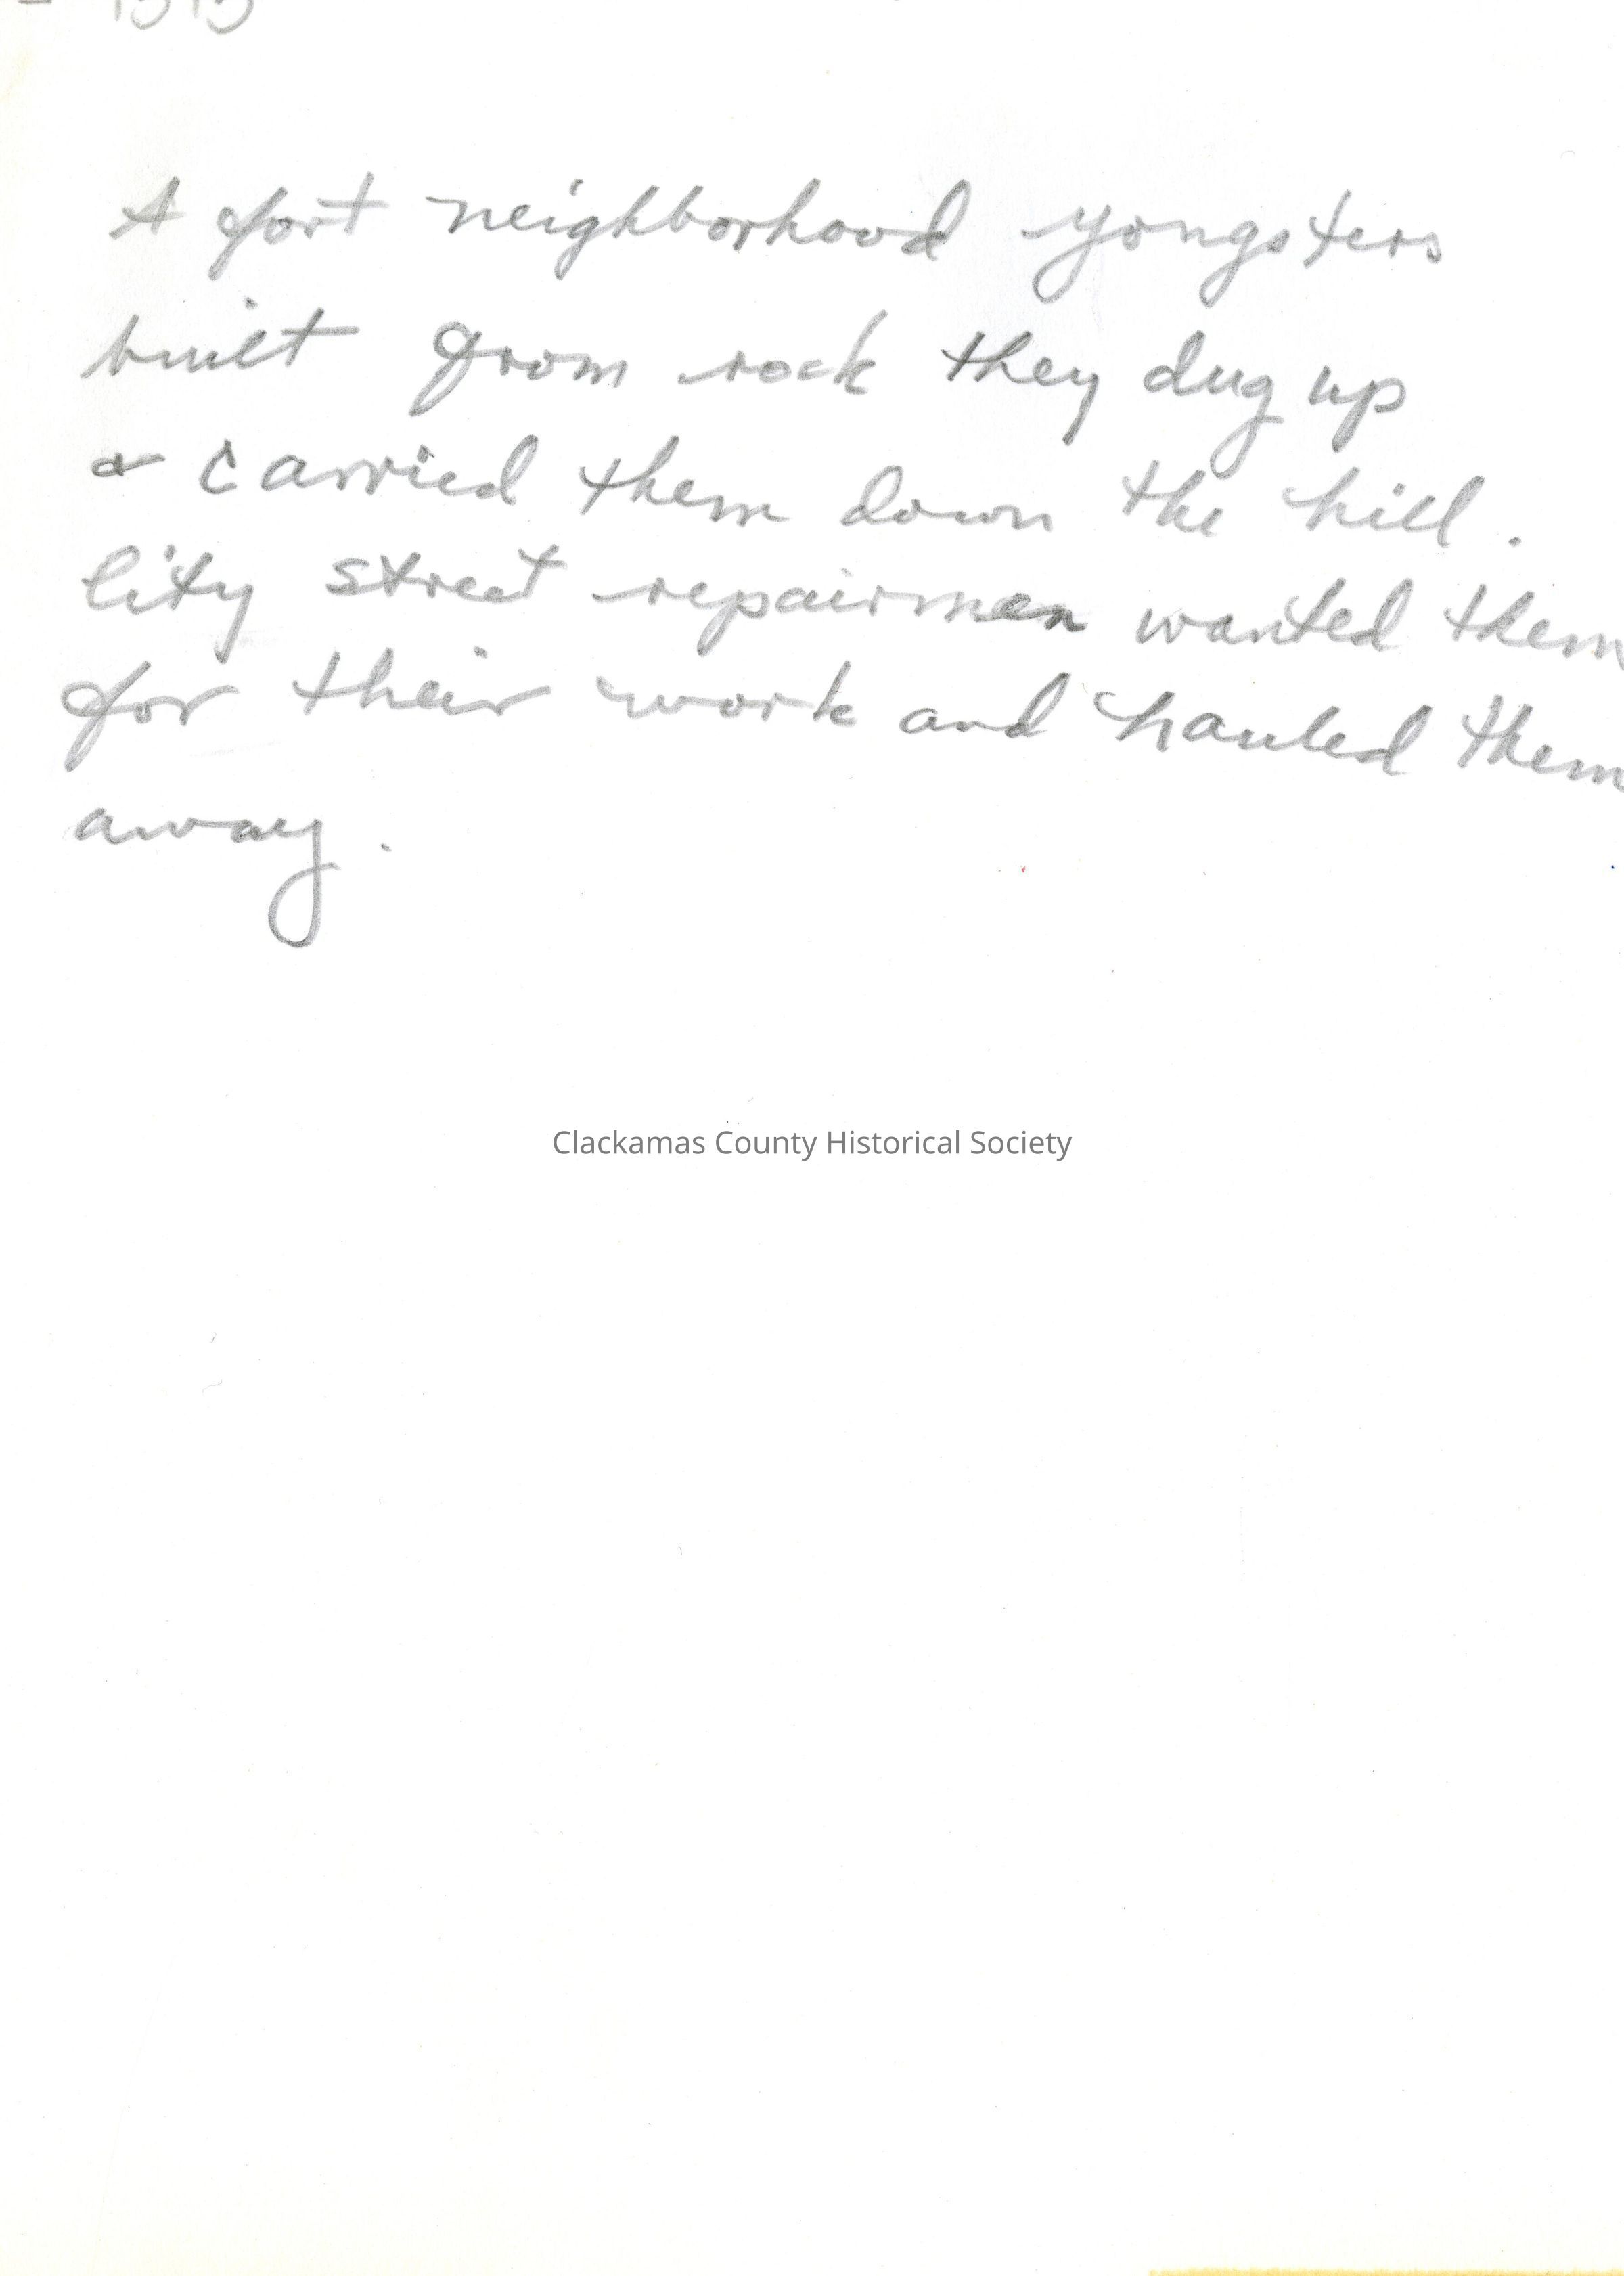 A fort neighborhood yongsters
built from rock they dug up
& carried them down the hill.
City street repairmen wanted them
for their work and hauled them
away.
Clackamas County Historical Society